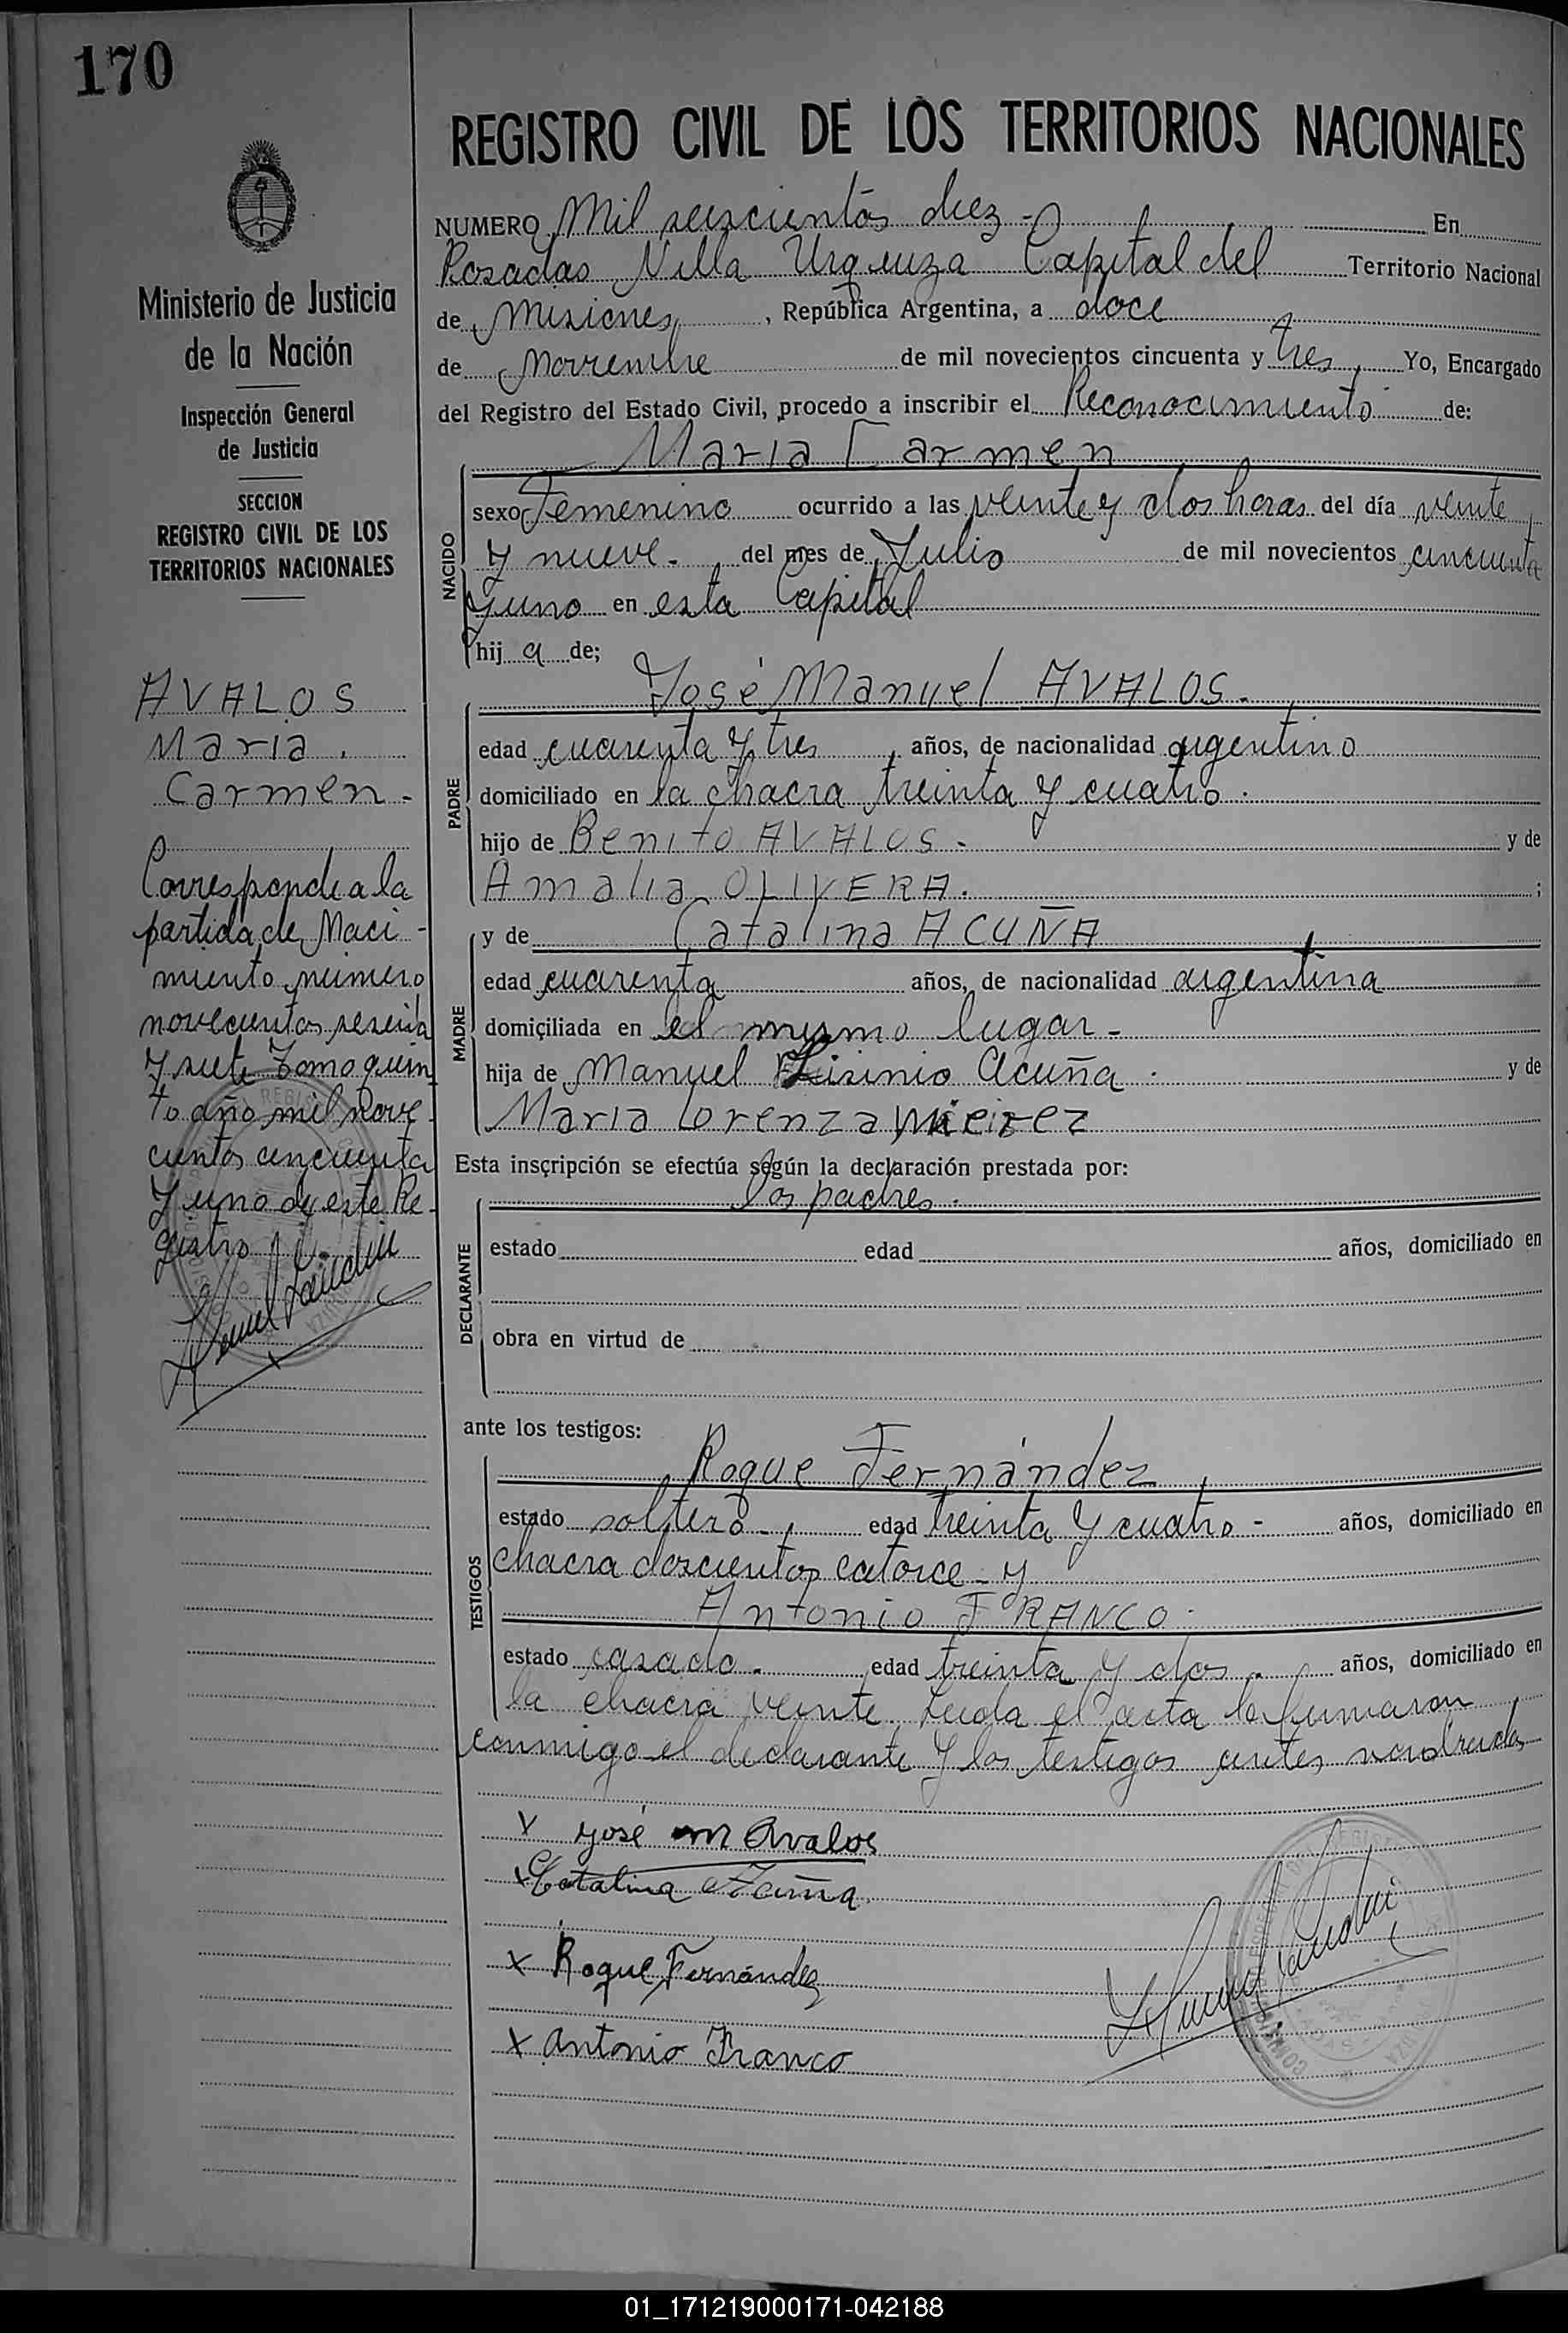 170
Ministerio de Justicia
de la Nación
Inspección General
de Justicia
SECCION
REGISTRO CIVIL DE LOS
TERRITORIOS NACIONALES
AVALOS
Maria
Carmen-
Corresponde a la
partida de Naci-
miento número
novecientos sesenta
y siete Tomo quin
to año mil nove
cientos cincuenta
y uno de este Re-
gistro
REGISTRO CIVIL DE LOS TERRITORIOS NACIONALES
NUMERO Mil seiscientos diez - En
Posadas Villa Urquiza Capital del Territorio Nacional
de Misiones, República Argentina, a doce
de Noviembre de mil novecientos cincuenta y tres, Yo, Encargado
del Registro del Estado Civil, procedo a inscribir el Reconocimiento de:
Maria Carmen
NACIDO
sexo Femenino ocurrido a las veinte y dos horas del día veinte
y nueve- del mes de Julio de mil novecientos cincuenta
y uno en esta Capital
hij a de;
PADRE
José Manuel AVALOS-
edad cuarenta y tres, años, de nacionalidad argentino
domiciliado en la chacra treinta y cuatro.
hijo de Benito AVALOS- y de
Amalia OLIVERA. ;
MADRE
y de Catalina ACUÑA
edad cuarenta años, de nacionalidad argentina
domiciliada en el mismo lugar-
hija de Manuel Lisinio Acuña. y de
Maria Lorenza
Esta inscripción se efectúa según la declaración prestada por:
DECLARANTE
los padres.
estado edad años, domiciliado en
obra en virtud de
ante los testigos:
TESTIGOS
Roque Fernández,
estado soltero-, edad treinta y cuatro- años, domiciliado en
chacra doscientos catorce- y
Antonio FRANCO.
estado casado. edad treinta y dos. años, domiciliado en
la chacra veinte. Leida el acta la firmaron
conmigo el declarante y los testigos antes nombrados
x José M Avalos
x Catalina Acuña
x Roque Fernández
x Antonio Franco
01_171219000171-042188